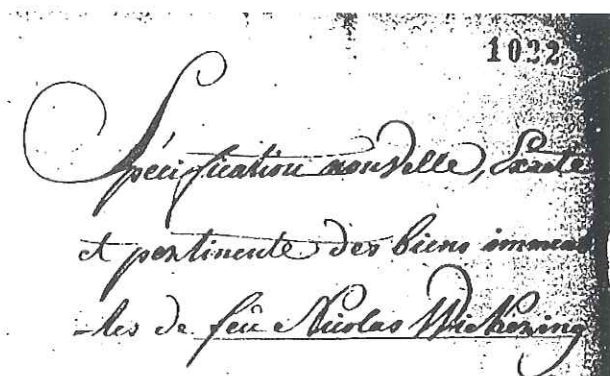 1022
Spécification nouvelle, Exacte
et pertinente des biens immeub
-les de feû Nicolas Wickering